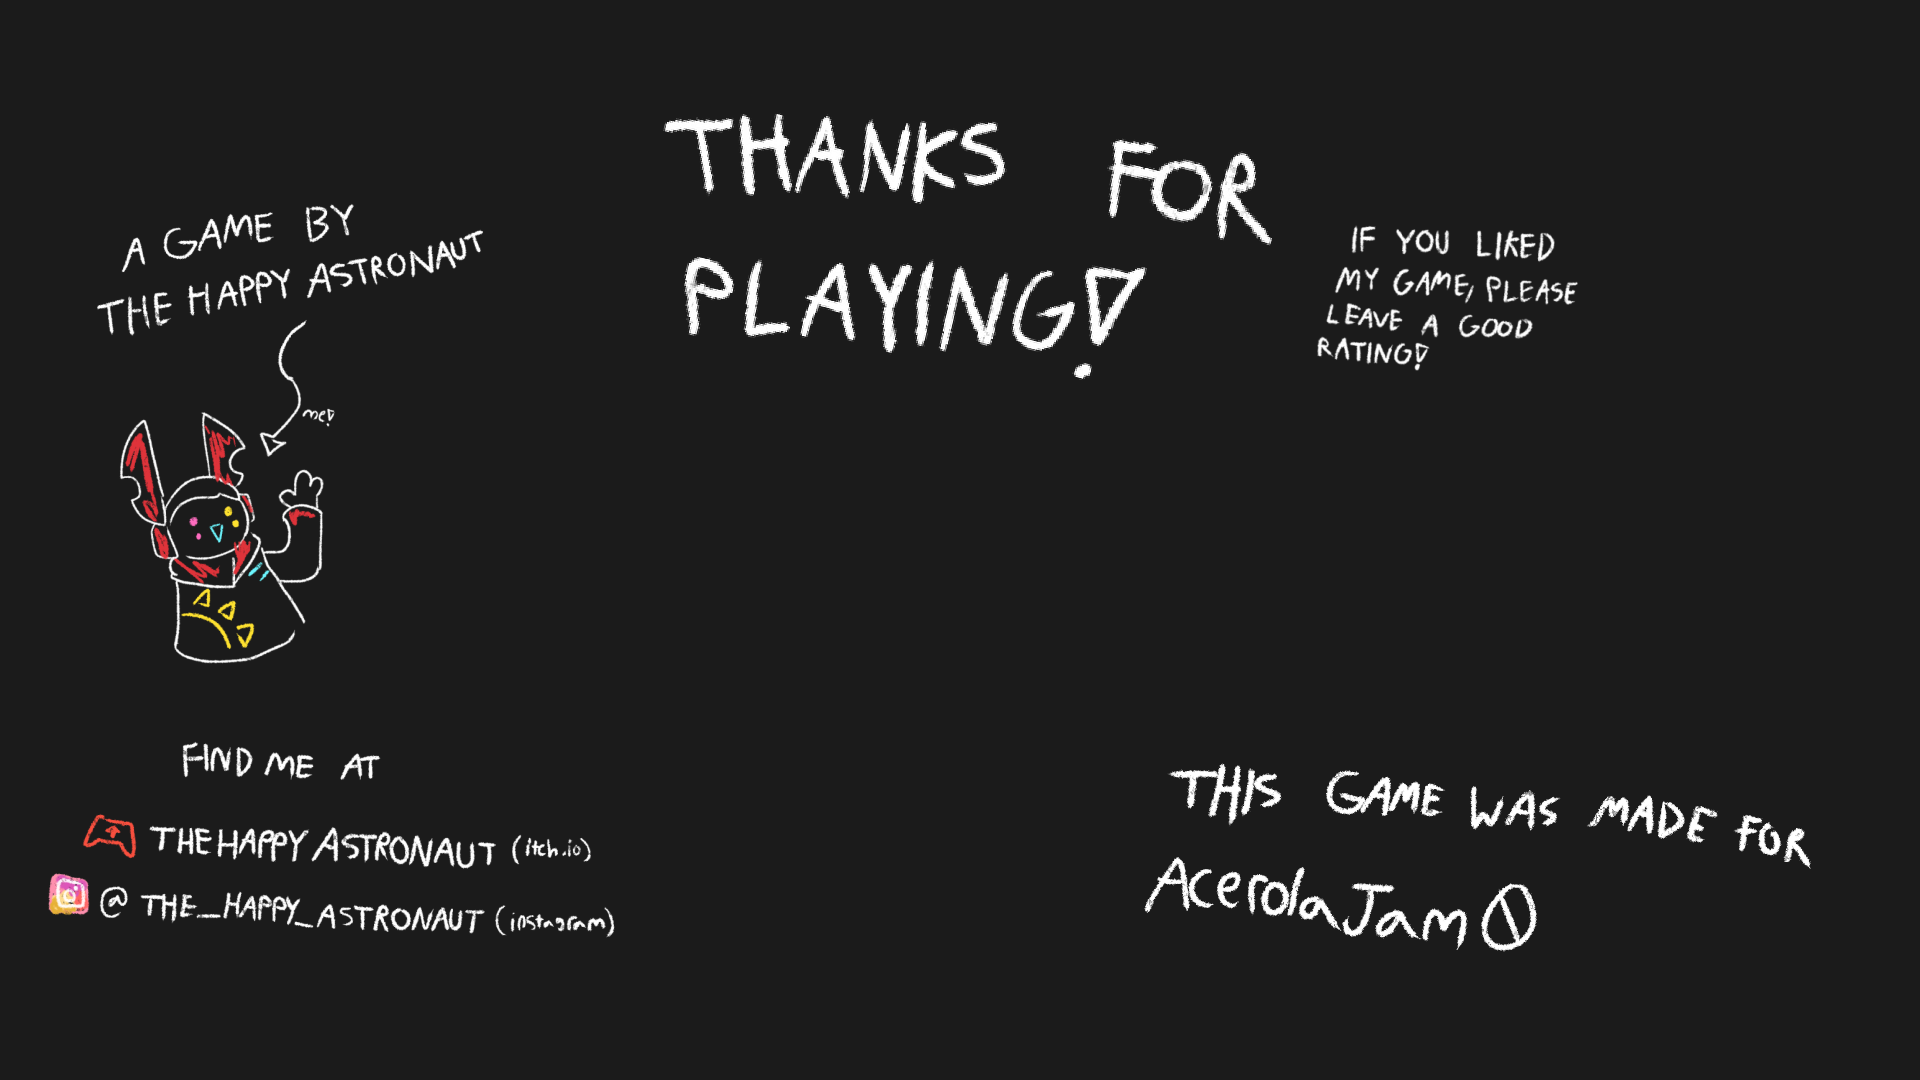 THANKS FOR
PLAYING!
A GAME BY
THE HAPPY ASTRONAUT
me!
IF YOU LIKED
MY GAME, PLEASE
LEAVE A GOOD
RATING!
FIND ME AT
THEHAPPYASTRONAUT (itch.io)
@THE_HAPPY_ASTRONAUT (instagram)
THIS GAME WAS MADE FOR
AcerolaJam 0